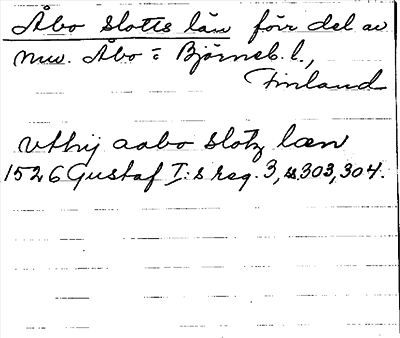 Åbo slotts län för del av
nuv. Åbo - Björneb. l.,
Finland
vthij aabo slotz læn
1526 Gustaf I:s reg. 3, s. 303, 304.